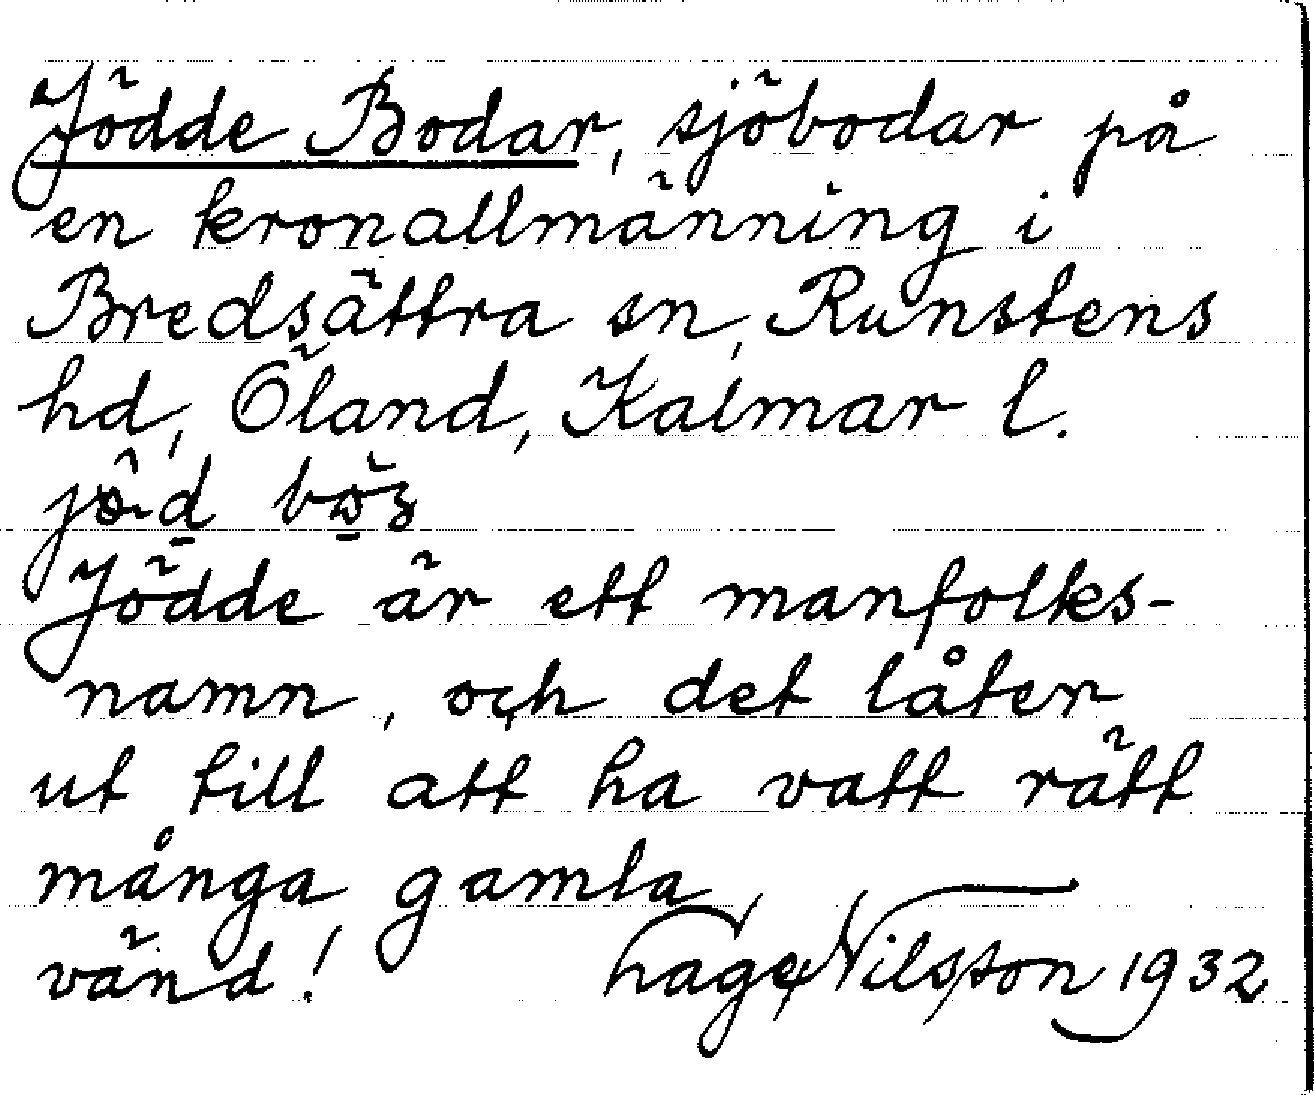 Jödde Bodar, sjöbodar på
en kronallmänning i
Bredsättra sn, Runstens
hd, Öland, Kalmar l.
Jödde är ett manfolks-
namn, och det låter
ut till att ha vatt rätt
många gamla
vänd! Nilsson 1932